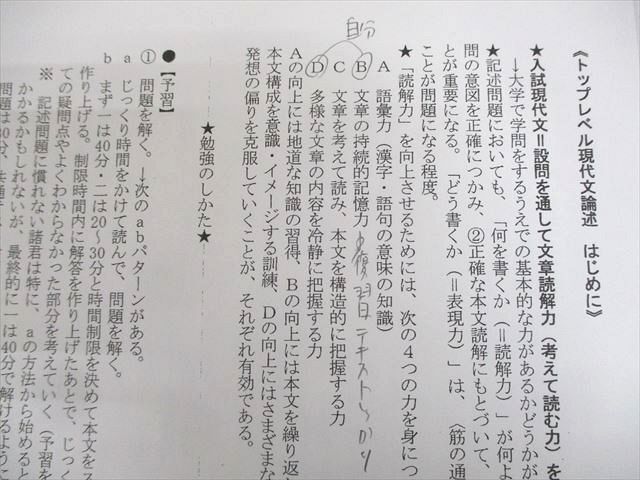 《トップレベル現代文論述　はじめに》
★入試現代文＝設問を通して文章読解力（考えて読む力）を
→大学で学問をするうえでの基本的な力があるかどうかが
★記述問題においても、「何を書くか（＝読解力）」が何よ
問の意図を正確につかみ、②正確な本文読解にもとづいて、
とが重要になる。「どう書くか（＝表現力）」は、〈筋の通
ことが問題になる程度。
★「読解力」を向上させるためには、次の４つの力を身につ
A　語彙力（漢字・語句の意味の知識）
B　文章の持続的記憶力 復習日テキストしっかり
C　文章を考えて読み、本文を構造的に把握する力
D　多様な文章の内容を冷静に把握する力
自分
Aの向上には地道な知識の習得、Bの向上には本文を繰り返し
本文構成を意識・イメージする訓練、Dの向上にはさまざまな
発想の偏りを克服していくことが、それぞれ有効である。
★勉強のしかた★
●【予習】
①　問題を解く。→次のａｂパターンがある。
a　じっくり時間をかけて読んで、問題を解く。
b　まず一は40分・二は20～30分と時間制限を決めて本文をス
作り上げる。制限時間内に解答を作り上げたあとで、じっく
ての疑問点やよくわからなかった部分を考えていく（予習を
※　記述問題に慣れない諸君は特に、ａの方法から始めると
かかるかもしれないが、最終的に一は40分で解けるように